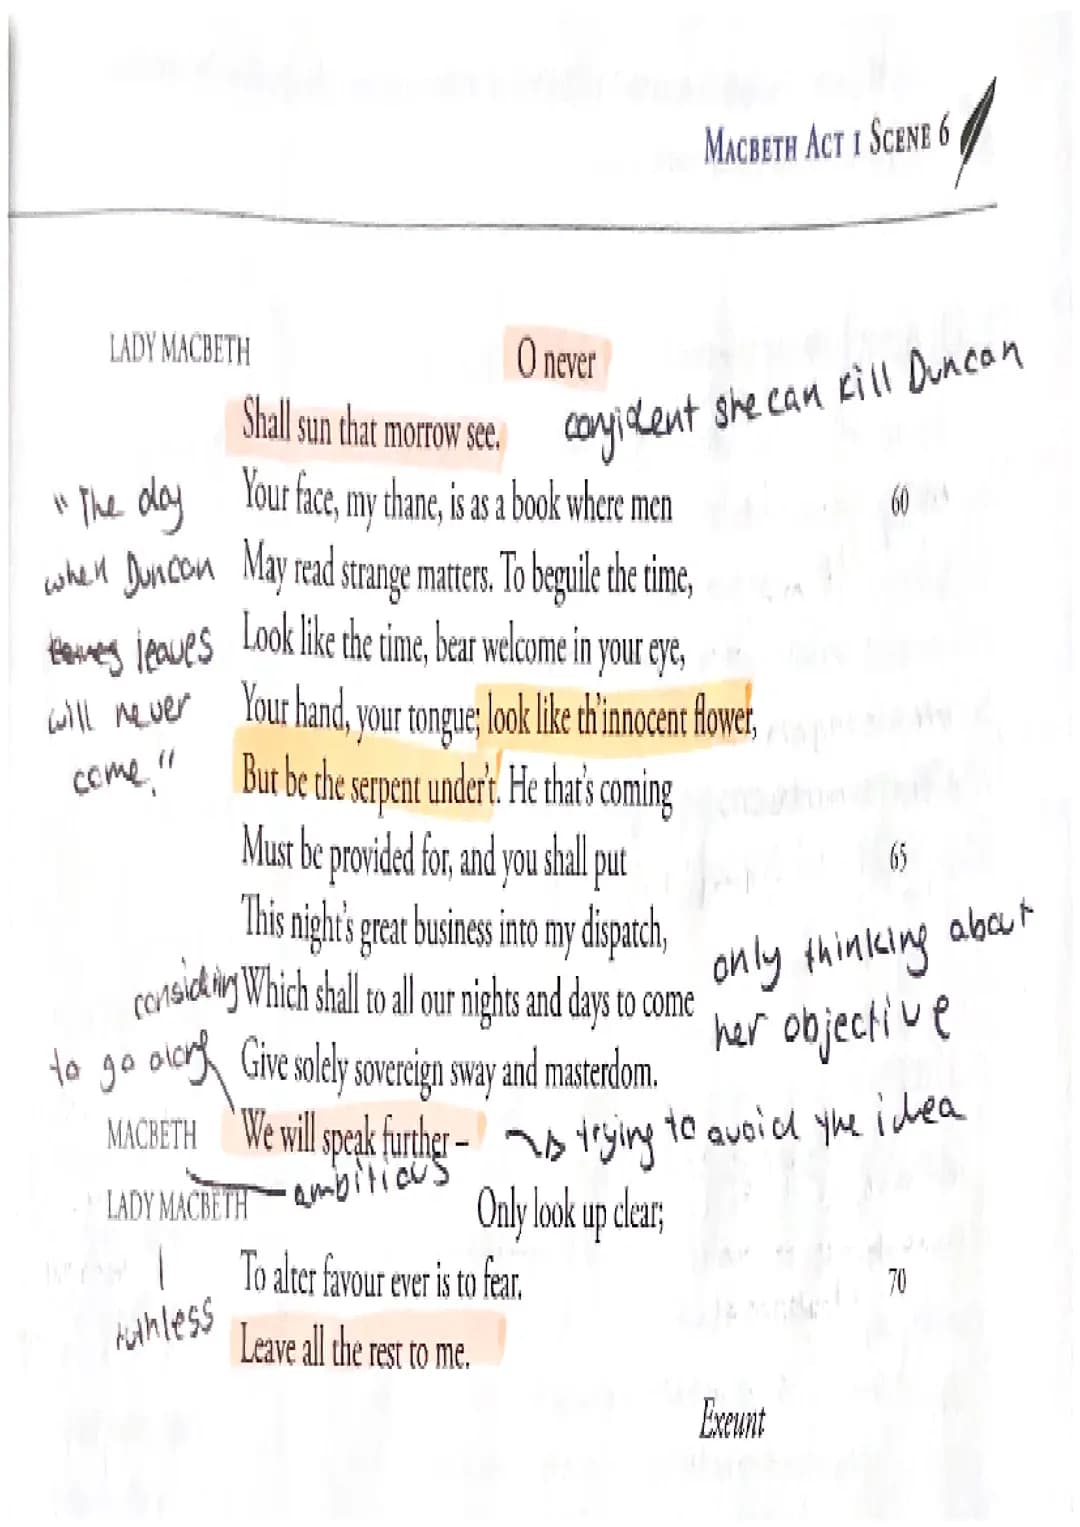 MACBETH ACT 1 SCENE 6
LADY MACBETH O never
confident she can kill Duncan
Shall sun that morrow see.
"The day
when Duncan
leaves
will never
come."
Your face, my thane, is as a book where men 60
May read strange matters. To beguile the time,
Look like the time, bear welcome in your eye,
Your hand, your tongue; look like th'innocent flower,
But be the serpent under't. He that's coming
Must be provided for, and you shall put 65
This night's great business into my dispatch,
Which shall to all our nights and days to come
Give solely sovereign sway and masterdom.
only thinking about
her objective
considering
to go along
MACBETH We will speak further –
trying to avoid the idea
ambitious
LADY MACBETH Only look up clear;
ruthless
To alter favour ever is to fear. 70
Leave all the rest to me.
Exeunt